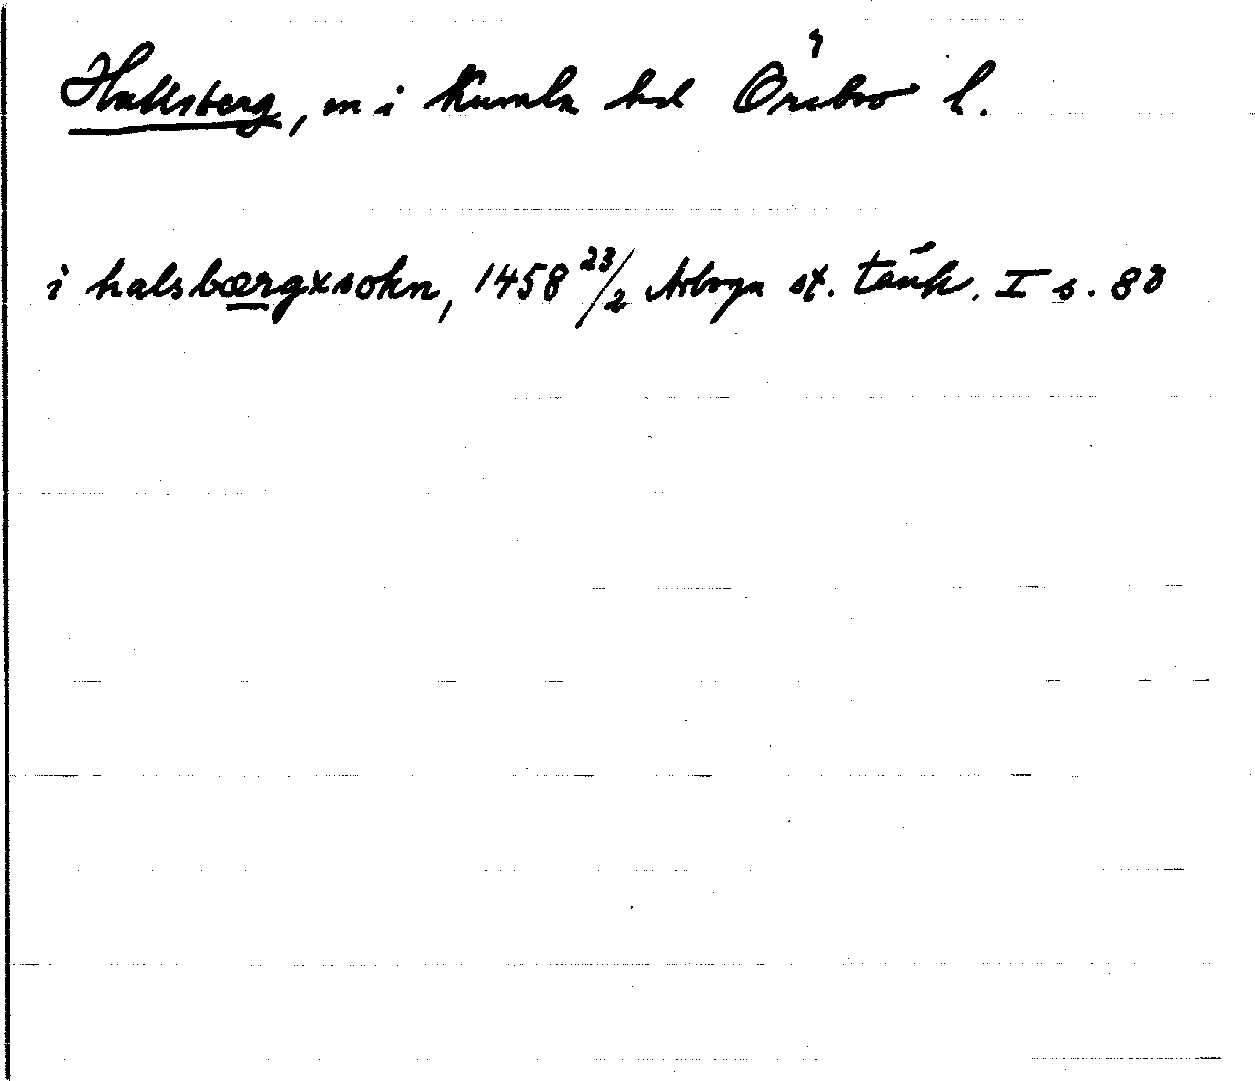 Hallsberg, sn i Kumla hd Örebro l.
i halsbærgxsokn, 1458 23/2 Arboga st. tänk. I s. 88